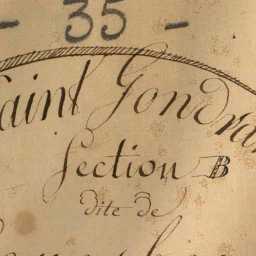 - 35 -
Saint Gondran
Section B
dite de